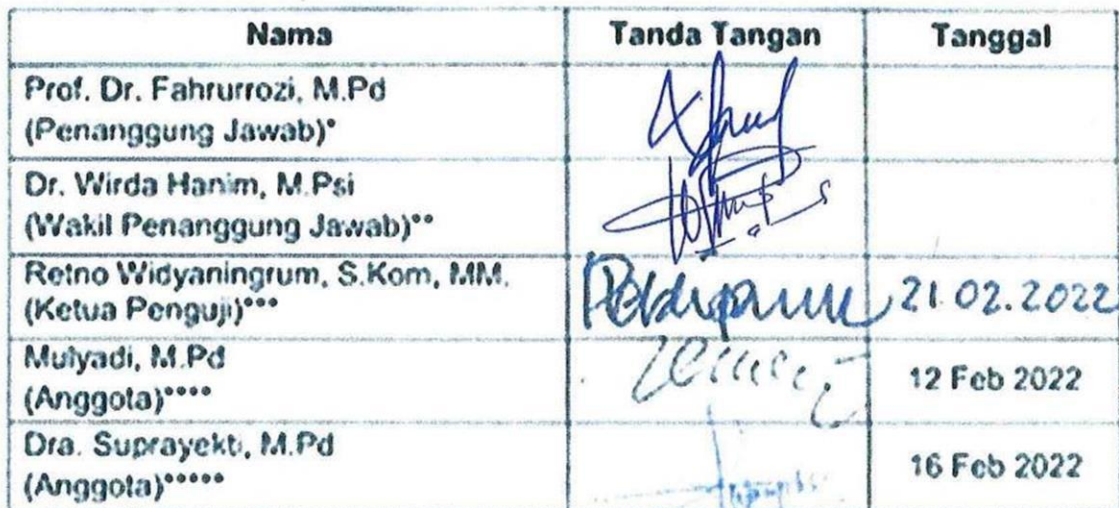 Nama Tanda Tangan Tanggal
Prof. Dr. Fahrurrozi, M.Pd
(Penanggung Jawab)*
Dr. Wirda Hanim, M.Psi
(Wakil Penanggung Jawab)**
Retno Widyaningrum, S.Kom, MM.
(Ketua Penguji)***
21.02.2022
Mulyadi, M.Pd
(Anggota)****
12 Feb 2022
Dra. Suprayekti, M.Pd
(Anggota)*****
16 Feb 2022